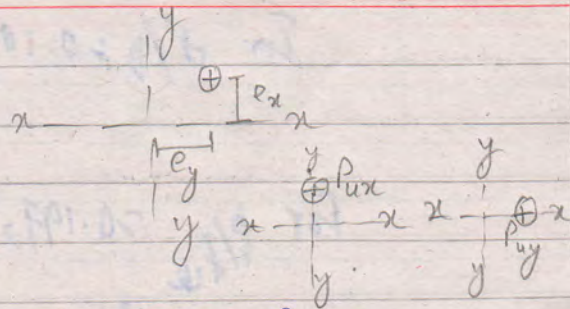 y
⊕ e_x
x x
e_y
y
y
⊕ P_ux
x x
y
y
x ⊕ x
P_uy
y